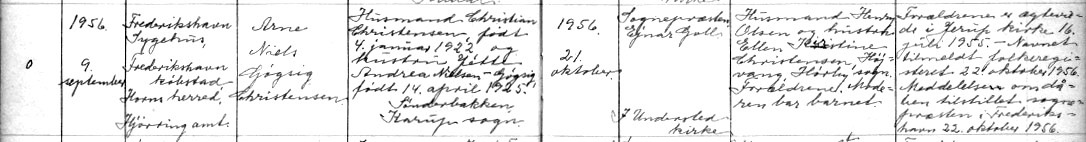 0
1956.
9.
september
Frederikshavn
Sygehus,
Frederikshavn
købstad
Horns herred,
Hjørring amt.
Arne
Niels
Gjøgsig
Christensen
Husmand Christian
Christensen, født
4. januar 1922, og
Hustru Jytte
Andrea Nielsen-Gjøgsig,
født 14. april 1925.
Sønderbakken
Karup sogn.
1956.
21.
oktober
Sognepræsten
Ejnar Goll
I Understed
kirke
Husmand Henry
Olsen og hustru
Ellen Kirstine
Christensen, Høj-
vang, Hørby sogn.
Forældrene. Mode-
ren bar barnet.
Forældrene er ægtevi-
de i Jerup kirke 16.
juli 1955. - Navnet
tilmeldt folkeregi-
steret 22. oktober 1956.
Meddelelsen om då-
ben tilstillet sogne-
præsten i Frederiks-
havn 22. oktober 1956.